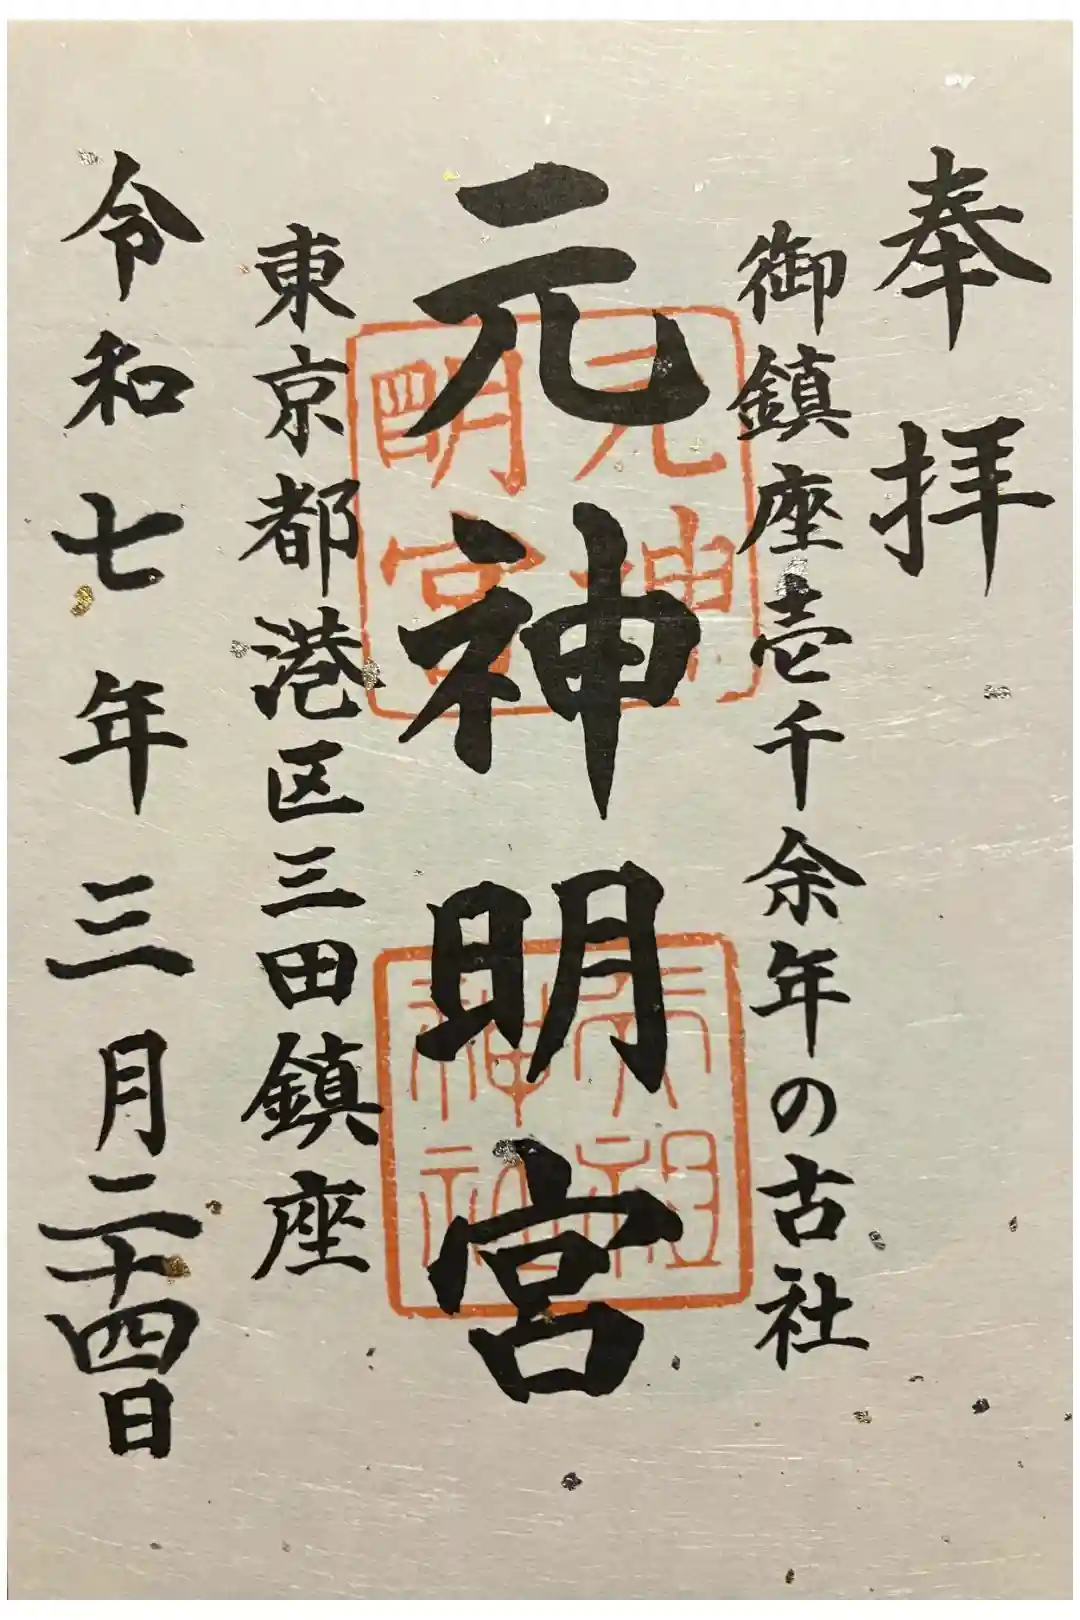 奉拝
御鎮座壱千余年の古社
元神明宮
元神明宮
天祖神社
東京都港区三田鎮座
令和七年三月二十四日